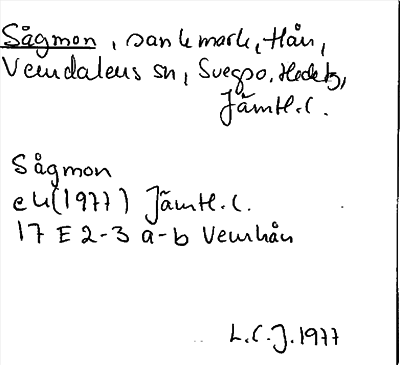 Sågmon, sankmark, Hån,
Vemdalens sn, Svegso, Hede tg,
Jämtl.l.
Sågmon
ek (1977) Jämtl.l.
17 E 2-3 a-b Vemhån
L.C.J. 1977